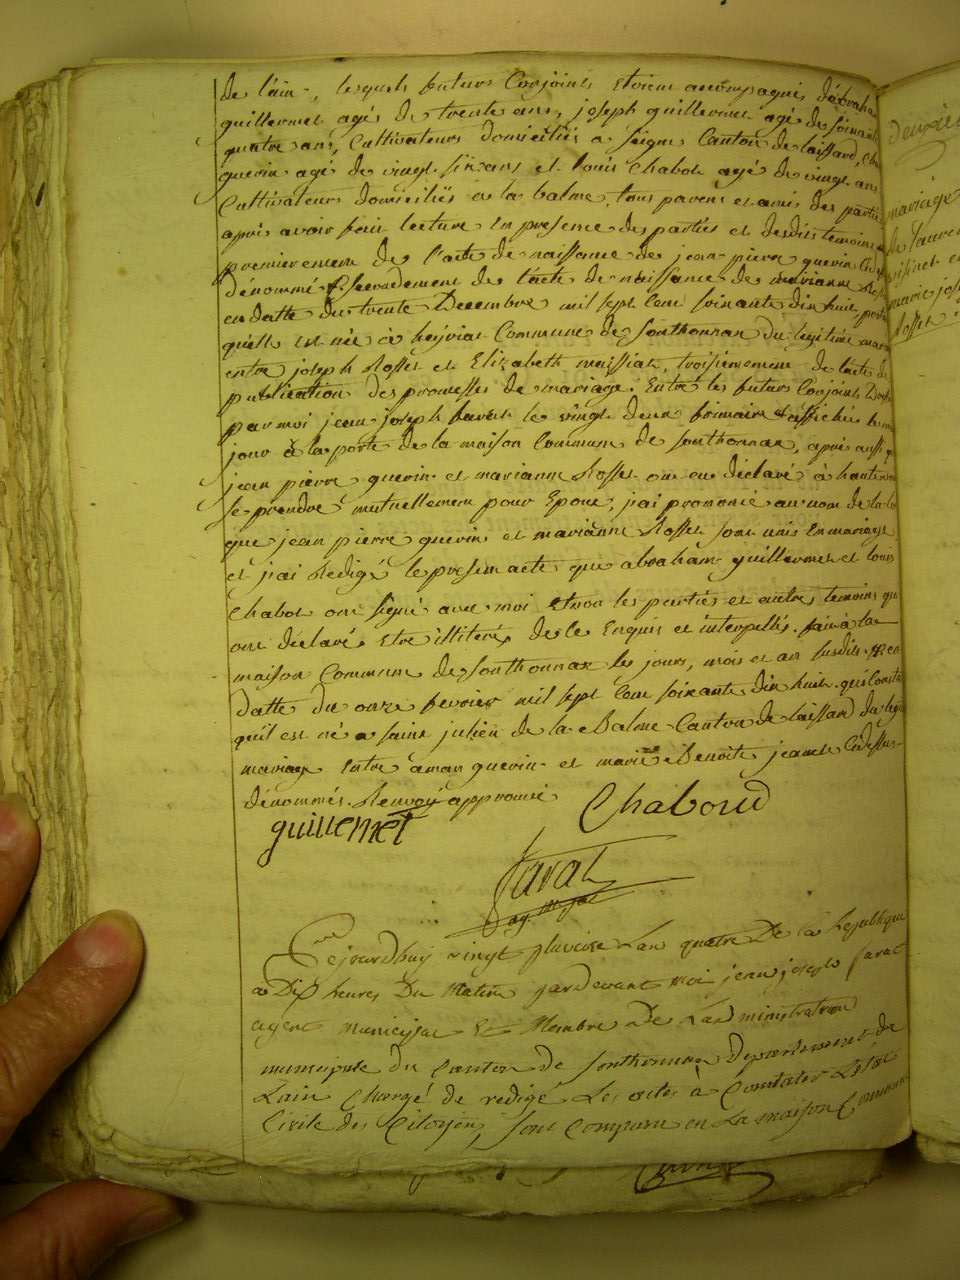 de l'ain, lesquels futurs Conjoints etoient accompagnés d'abraham
guillermet agé de trente ans, joseph guillermet agé de soixante
quatre ans, Cultivateurs domiciliés a Canton de
guerin agé de vingt six ans et Louis Chabot agé de vingt ans
Cultivateurs domiciliés a la balme, tous parens et amis des parties
apres avoir fait lecture en presence des parties et desdits temoins
premierement de l'acte de naissance de jean pierre guerin
dénommé & secondement de l'acte de naissance de marianne Rosset
en datte du trente Decembre mil sept Cent soixante dix huit, portant
qu'elle est née à heyriat Commune de Sonthonnax du legitime mariage
entre joseph Rosset et Elizabeth maissiat, troisiemement de l'acte de
publication des promesses de mariage Entre les futurs Conjoints
par moi jean joseph favat le vingt deux frimaire & affichée le même
jour à la porte de la maison Commune de Sonthonnax, après aussi que
jean pierre guerin et marianne Rosset ont eu déclaré à haute voix
se prendre mutuellement pour Epoux, j'ai prononcé au nom de la loi
que jean pierre guerin et marianne Rosset sont unis en mariage
et j'ai Redigé le present acte que abraham guillermet et Louis
Chabot ont signé avec moi et non les parties et autres temoins qui
ont déclaré Etre illiterés de ce Enquis et interpellés. fait à la
maison Commune de Sonthonnax les jours, mois et an susdits en
datte du onze fevrier mil sept Cent soixante dix huit qui Constate
qu'il est né a saint julien de la Balme Canton de du legitime
mariage Entre aman guerin et marie Benoite jeannet Cidessus
dénommés. Renvoy approuvé
guillermet Chaboud
favat
ag. m.pal
Cejourd'huy vingt pluviose L'an quatre De la Republique
a Dix heures Du Matin pardevant moi jean joseph favat
agent municipal Et Membre De L'administration
municipale du Canton de Sonthonnax Departement de
L'ain Chargé de redigé Les actes a Constater L'etat
Civile des Citoyens, sont Comparu en La maison Commune
mariage
de Laurent
et
marie joseph
Rosset